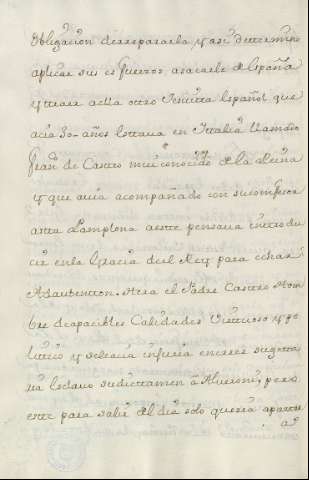 obligacion de repararla y asi determinò
aplicar sus esfuerzos a sacarle de España
y traer a ella otro Jesuita español que
acia 30 años estava en Ittalia llamado
Fran.co de Castro mui conocido de la Reina
y que avia acompañado con su confesor
asta Pamplona a este pensava introdu
cir en la gracia del Rey para echar
a Daubenton. Hera el Padre Castro Hom
bre de apacibles Calidades Virtuoso y po
litico y se creia
su dictamen a Alveroni, pero
este para salir del dia solo queria apartar
a.s